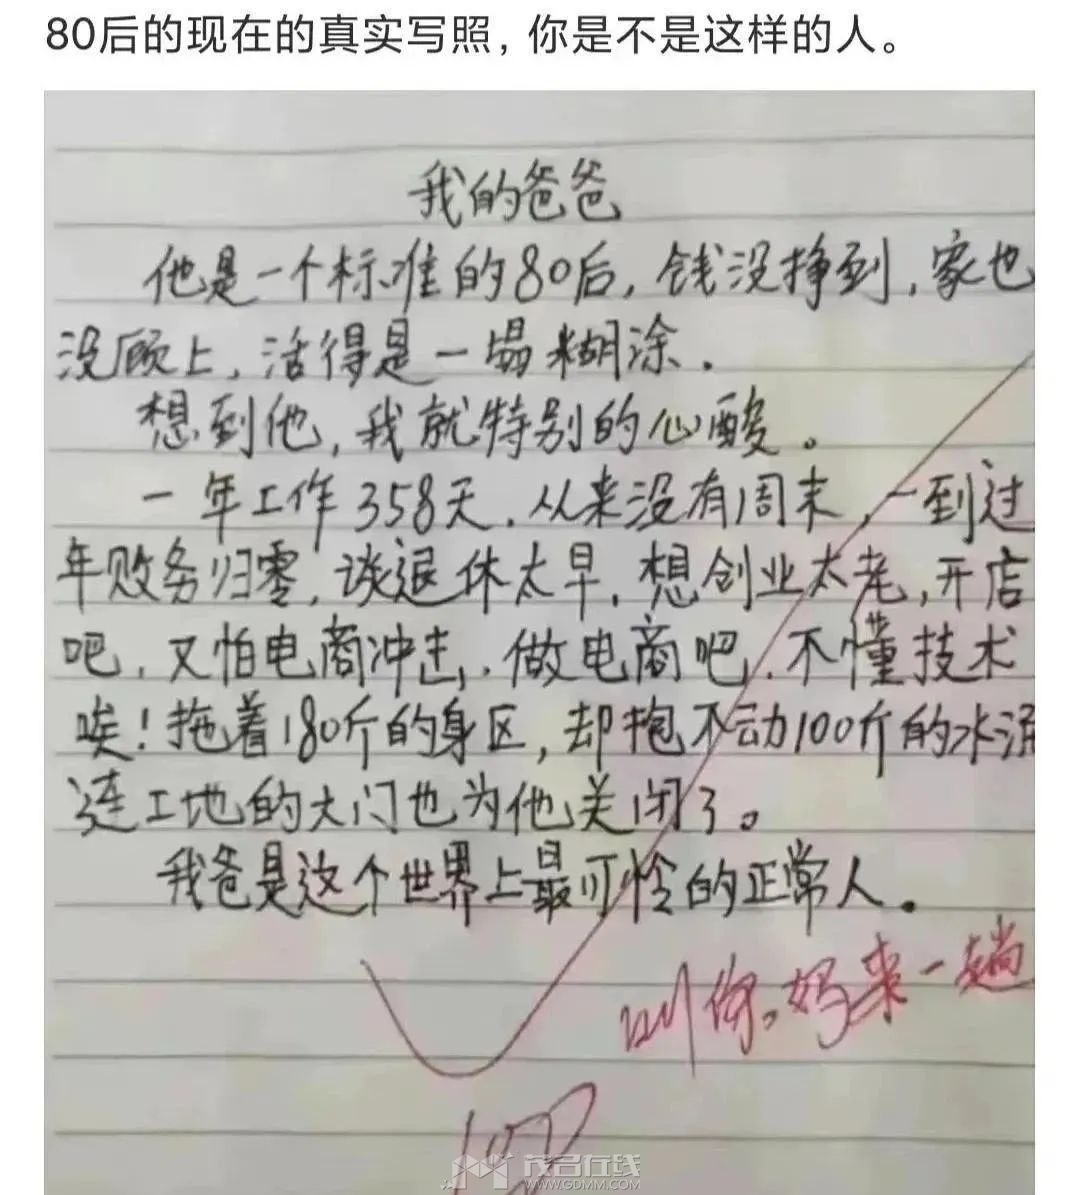 80后的现在的真实写照，你是不是这样的人。
我的爸爸
他是一个标准的80后，钱没挣到，家也
没顾上，活得是一塌糊涂。
想到他，我就特别的心酸。
一年工作358天，从来没有周末，一到过
年账务归零，谈退休太早，想创业太老，开店
吧，又怕电商冲击，做电商吧，不懂技术
唉！拖着180斤的身区，却抱不动100斤的水泥
连工地的大门也为他关闭了。
我爸是这个世界上最可怜的正常人。
叫你妈来一趟
茂名在线
WWW.GDMM.COM